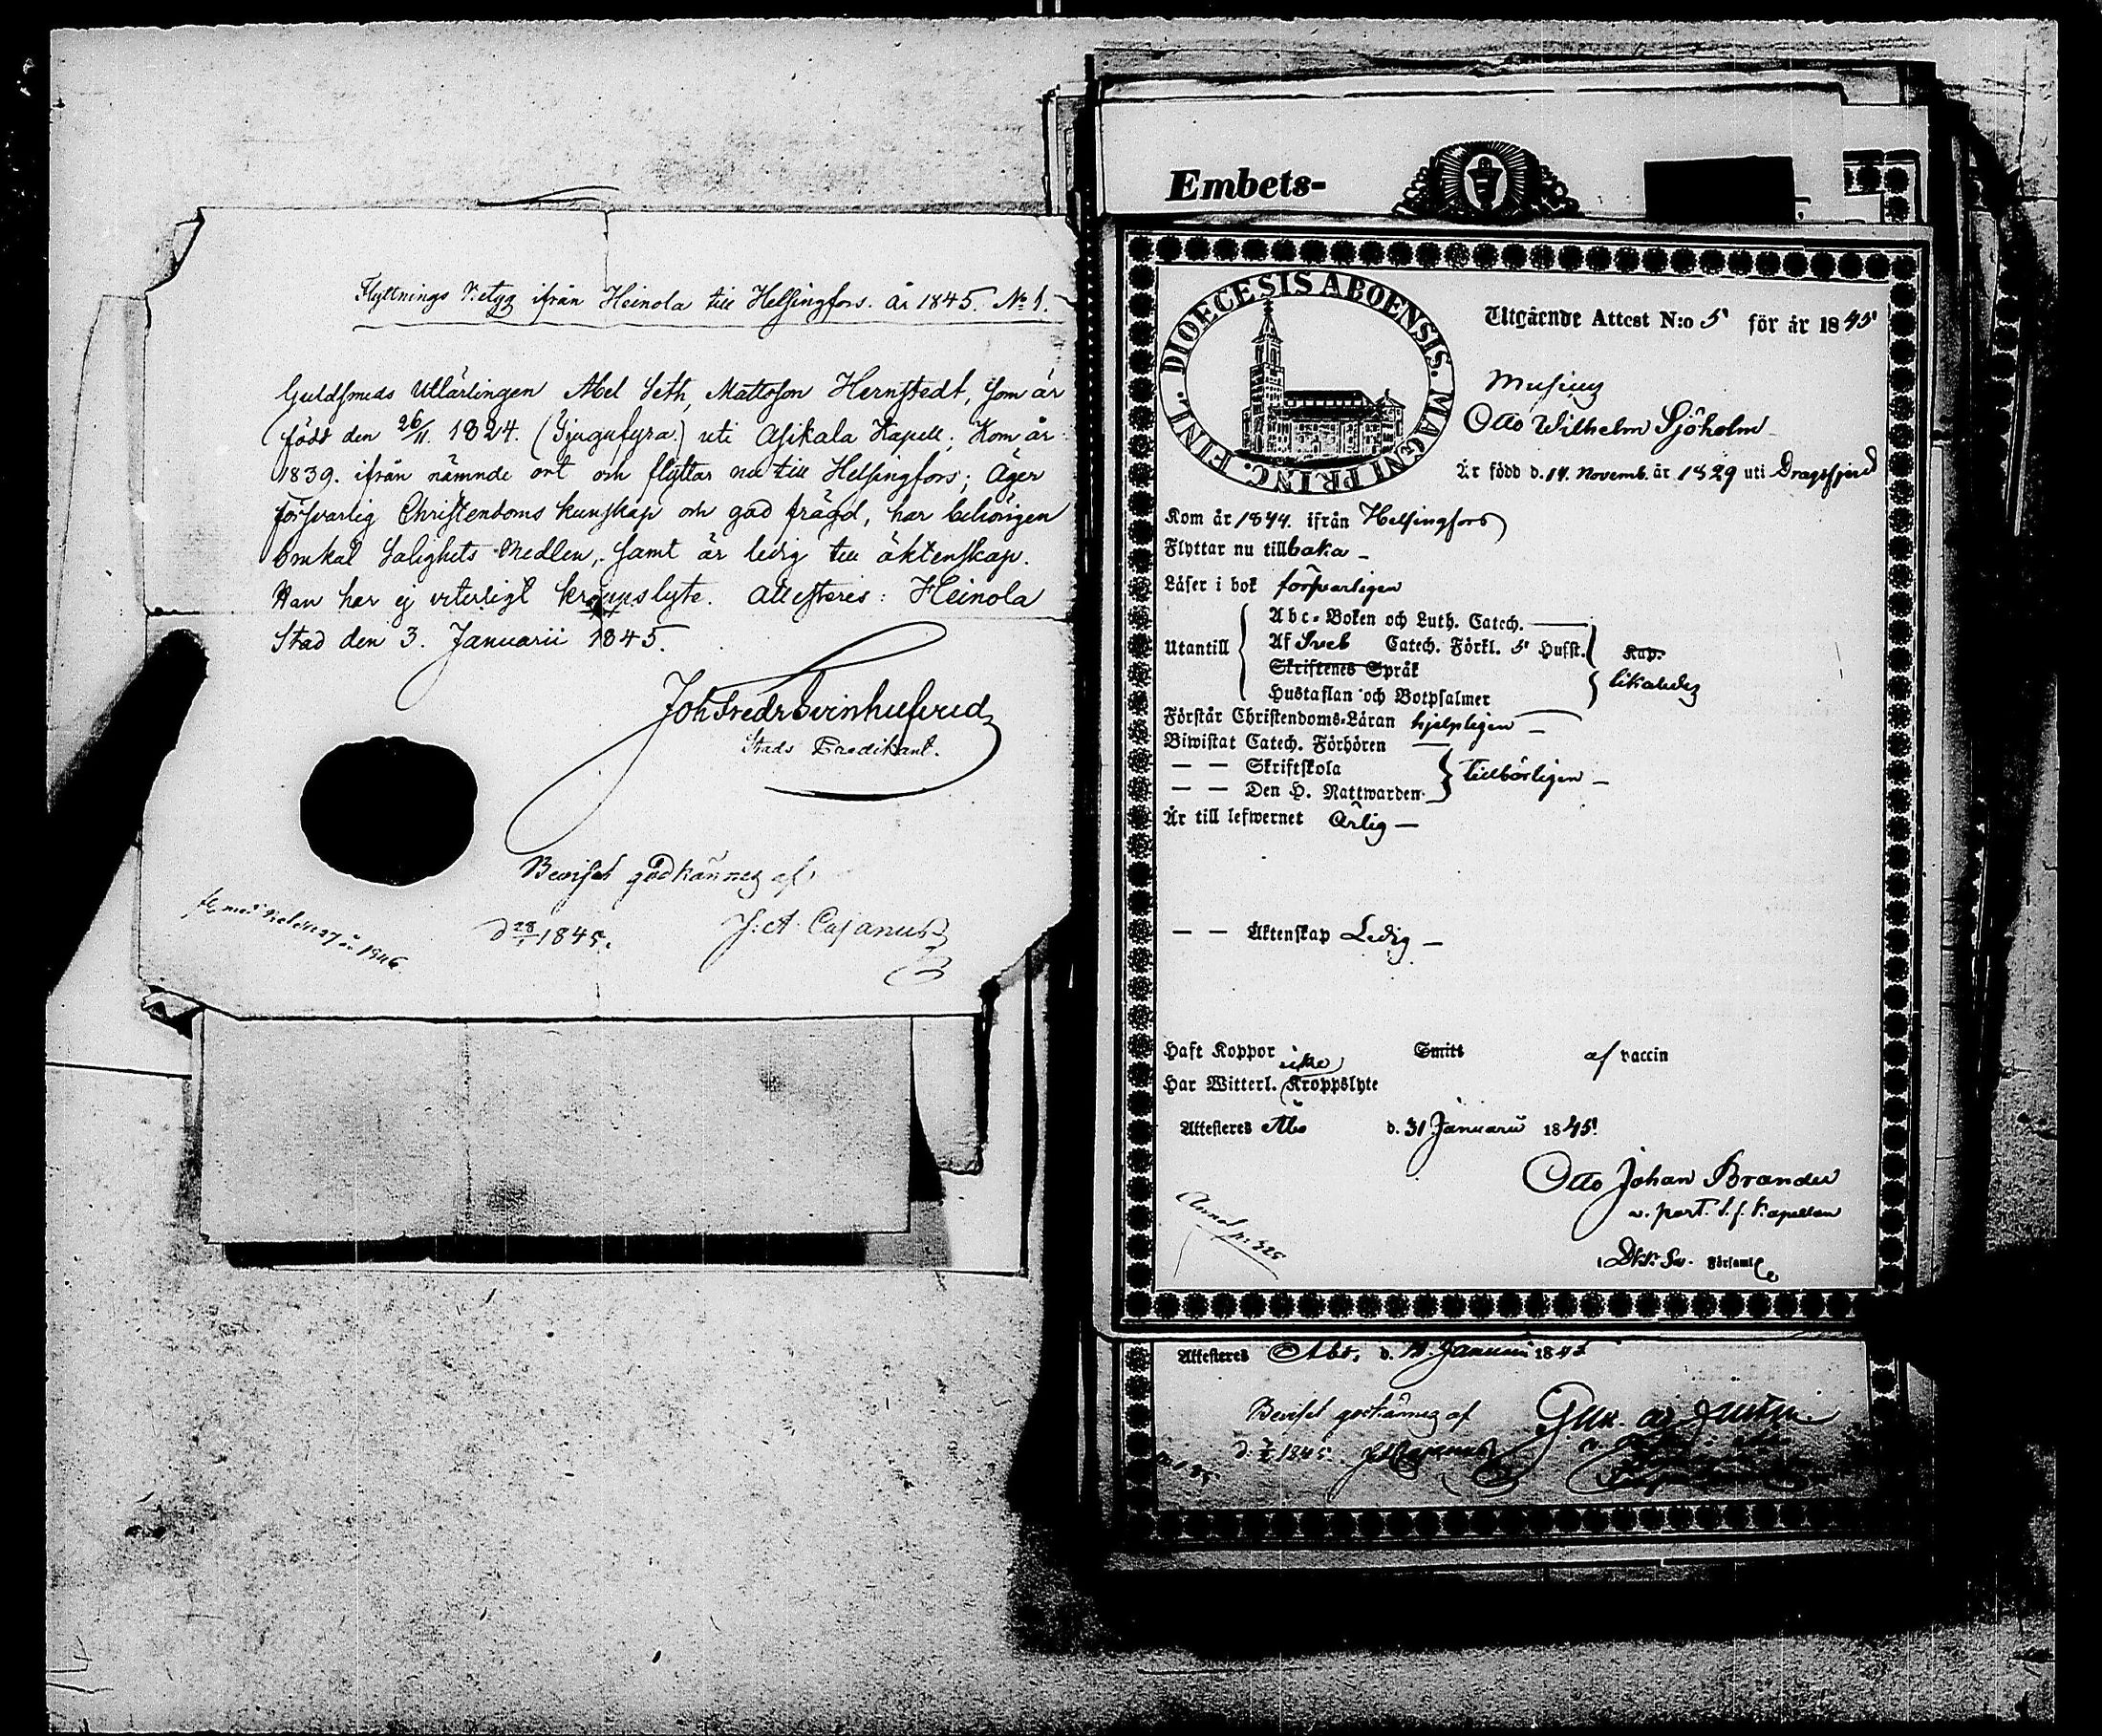 Flyttnings Betyg ifrån Heinola till Helsingfors. år 1845. No 1.
Guldsmeds Utlärlingen Abel Seth, Mattsson Hernstedt, som är
född den 26/11. 1824. (Tjugufyra) uti Asikala Kapell; Kom år
1839. ifrån nämnde ort och flyttar nu till Helsingfors; Äger
försvarlig Christendoms kunskap och god frägd, har behörigen
omkal Salighets Medlen, samt är ledig till äktenskap.
Han har ej veterligt kroppslyte. Attesteris: Heinola
Stad den 3. Januarii 1845.
Joh Fredr Svinhufvud
Stads Predikant.
Beviset godkännes af
d 28/1 1845. J: A Cajanus
1846.
Embets-
DIOECESIS ABOENSIS. MAGNI PRINC. FINL.
Utgående Attest N:o 5 för år 1845
Otto Wilhelm Sjöholm
Är född d. 14 Novemb. år 1829 uti Dragsfjerd
Kom år 1844. ifrån Helsingfors
Flyttar nu tillbaka
Läser i bok försvarligen
Utantill
Abc-Boken och Luth. Catech.
Af Sveb Catech. Förkl. 5 Husst.
Kap.
Skriftenes Språk
likaledes
Hustaflan och Botpsalmer
Förstår Christendoms-Läran hjelpligen
Biwistat Catech. Förhören
— — Skriftskola
tillbörligen
— — Den H. Nattwarden
Är till lefwernet Ärlig
— — Äktenskap Ledig
Haft Koppor Smitt af vaccin
icke
Har Witterl. Kroppslyte
Attesteras Åbo d. 31 Januarii 1845
Otto Johan Brander
v. past. Kapellan
Församl
Attesteras Åbo, d. Januarii 18
Beviset godkännes af
1845